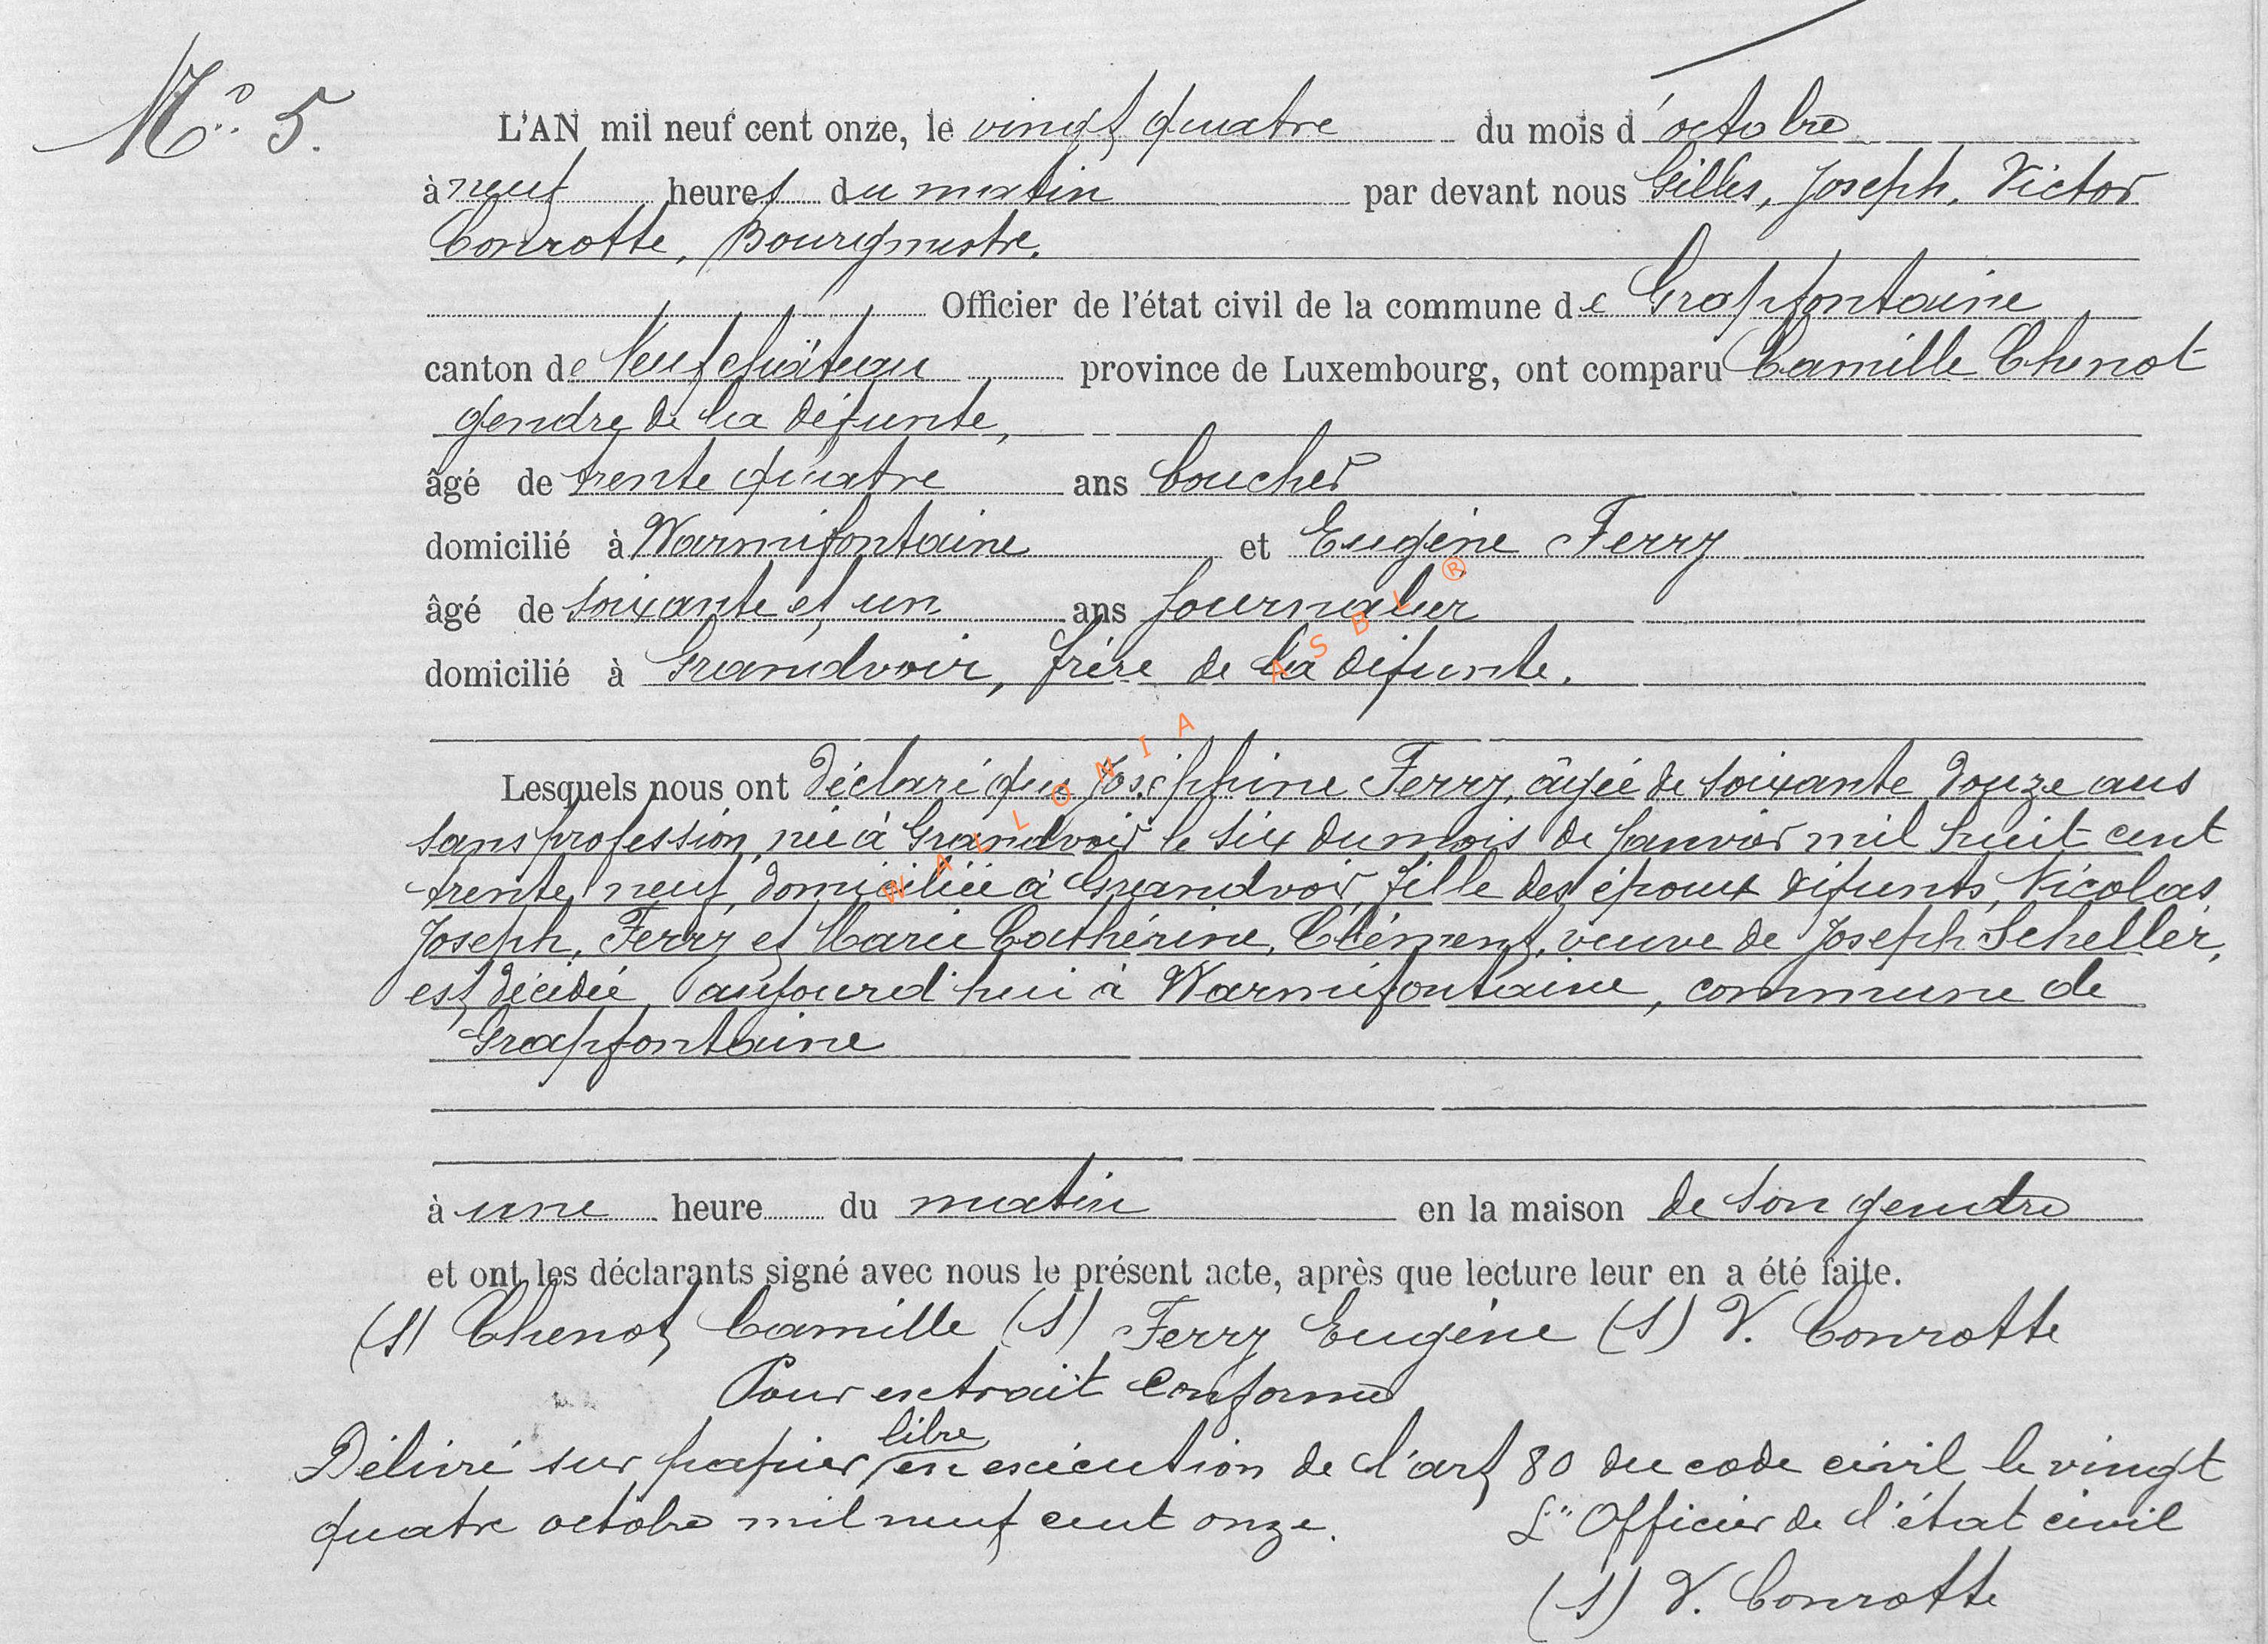 N° 5.
L'AN mil neuf cent onze, le vingt quatre du mois d'octobre
à neuf heures du matin par devant nous Gilles, Joseph, Victor
Conrotte, Bourgmestre.
Officier de l'état civil de la commune de Grapfontaine
canton de Neufchâteau province de Luxembourg, ont comparu Camille Chenot
gendre de la défunte,
âgé de trente quatre ans boucher
domicilié à Warmifontaine et Eugène Ferry
âgé de soixante et un ans journalier
domicilié à Grandvoir, frère de la défunte.
Lesquels nous ont déclaré que Joséphine Ferry, âgée de soixante douze ans
sans profession, née à Grandvoir le six du mois de Janvier mil huit cent
trente neuf, domiciliée à Grandvoir, fille des époux défunts, Nicolas,
Joseph, Ferry et Marie Cathérine, Clément, veuve de Joseph Scheller,
est décédée, aujourd'hui à Warmifontaine, commune de
Grapfontaine
à une heure du matin en la maison de son gendre
et ont les déclarants signé avec nous le présent acte, après que lecture leur en a été faite.
(s) Chenot Camille (s) Ferry Eugène (s) V. Conrotte
Pour extrait conforme
Délivré sur papier libre en exécution de l'art 80 du code civil le vingt
quatre octobre mil neuf cent onze. L'Officier de l'état civil
(s) V. Conrotte
WALLONIA ASBL ®